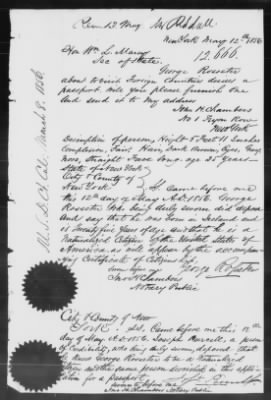 New York May 12th 1856
12,666.
Hon Wm L. Marcy
Sec of State.
George Rossiter
about to visit Foreign Countries desires a
passport. Will you please furnish one
and send it to my address
John H Chambers
No 1 Park Row
New York
Description of person, Hight 5 Feet 11 Inches
Complexion, Fair, Hair, Dark Brown, Eyes, Gray
Nose, Straight Face long. age 25 years
State of New York
City & County of
New York
SS. Came before me
this 12th day of May A.D. 1856. George
Rossiter who being duly sworn did depose
and say that he was born in Ireland and
is Twenty five years of age and that he is a
Naturalized Citizen of the United States of
America as will appear by the accompa
nying Certificate of Citizenship
Sworn before me
George Rossiter
Jno H Chambers
Notary Public
City & County of New
York
SS. Came before me this 12th
day of May A.D. 1856. Joseph
a person
of
who being duly sworn, deposed That
he knows George Rossiter to be a Naturalized
the same person described in this appli
cation for a passport
Sworn to before me
Jno H Chambers Notary Public
March 8. 1856.